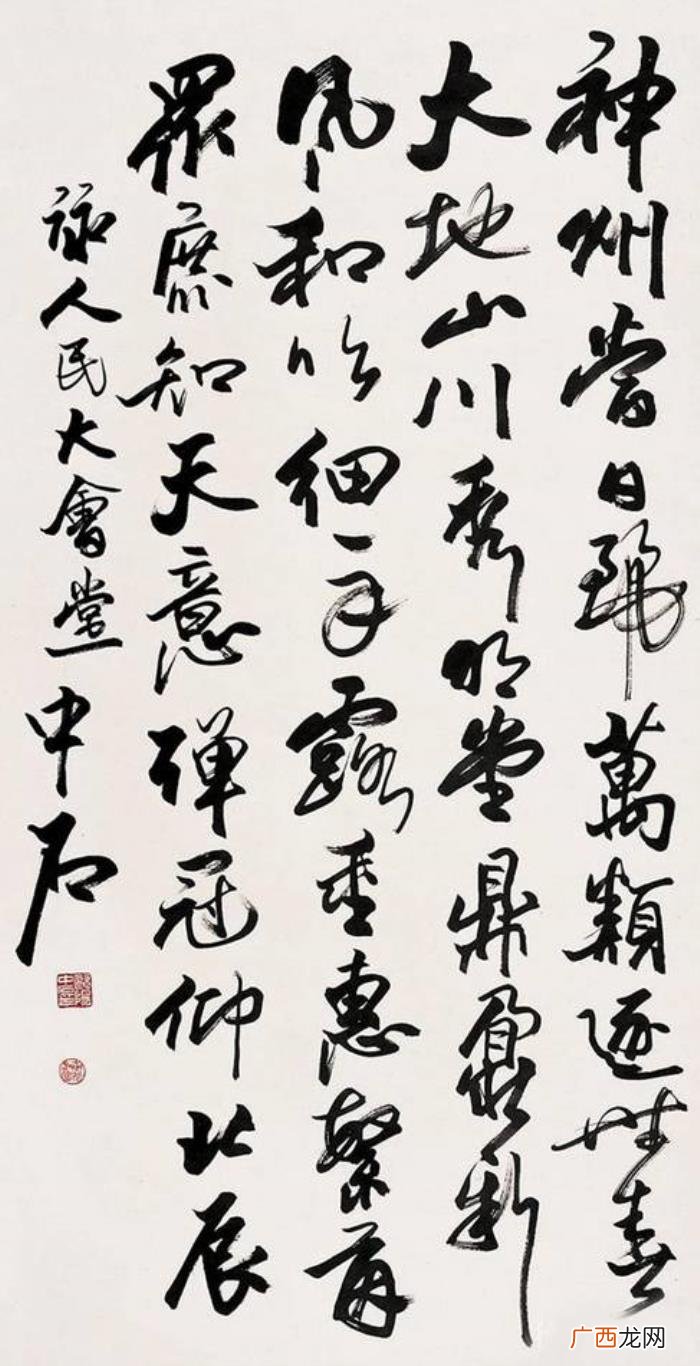 神州當日麗萬類遂性春
大地山川秀明堂鼎鼐新
風和吹細露垂惠繁
眾庶知天意彈冠仰北辰
詠人民大會堂 中石
广西龙网